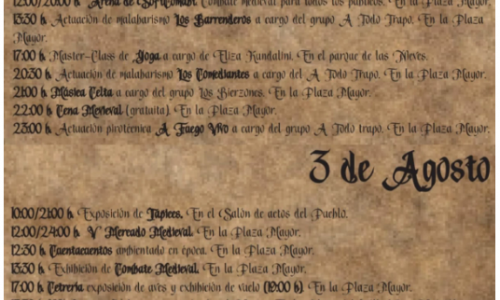 12:00/20:00 h. Arena de Combate medieval para todos los públicos. En la Plaza Mayor.
13:30 h. Actuación de malabarismo Los Barrenderos a cargo del grupo A Todo Trapo. En la Plaza
Mayor.
17:00 h. Master-Class de Yoga a cargo de Eliza Kundalini. En el parque de las Nieves.
20:30 h. Actuación de malabarismo Los Comediantes a cargo del A Todo Trapo. En la Plaza Mayor.
21:00 h. Música Celta a cargo del grupo Los Bierzones. En la Plaza Mayor.
22:00 h. Cena Medieval (gratuita). En la Plaza Mayor.
23:00 h. Actuación pirotécnica A Fuego Vivo a cargo del grupo A Todo trapo. En la Plaza Mayor.
3 de Agosto
10:00/21:00 h. Exposición de Tapices. En el Salón de actos del Pueblo.
12:00/24:00 h. V Mercado Medieval. En la Plaza Mayor.
12:30 h. Cuentacuentos ambientado en época. En la Plaza Mayor.
13:30 h. Exhibición de Combate Medieval. En la Plaza Mayor.
17:00 h. Cetrería exposición de aves y exhibición de vuelo (19:00 h). En la Plaza Mayor.